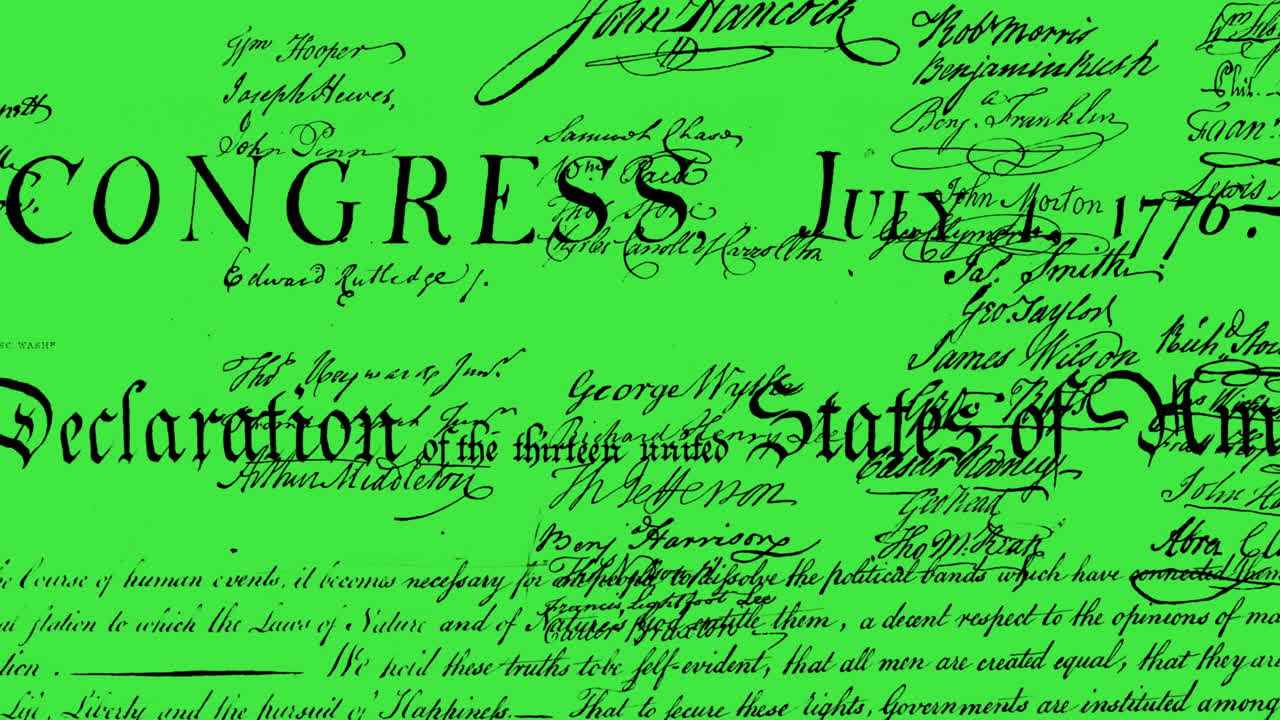 Wm Hooper
Joseph Hewes,
John Penn
Edward Rutledge /.
Thos Heyward Junr.
Arthur Middleton
John Hancock
Samuel Chase
Wm. Paca
Thos. Stone
Charles Carroll of Carrollton
George Wythe
Richard Henry Lee
Th Jefferson
Benj Harrison
Francis Lightfoot Lee
Carter Braxton
Robt Morris
Benjamin Rush
Benja. Franklin
John Morton
Geo Clymer
Jas. Smith.
Geo. Taylor
James Wilson
Geo. Ross
Caesar Rodney
Geo Read
Tho M. Kean
Phil.
Lewis
Richd. Stock
John Ha
Abra Cl
CONGRESS, July 4, 1776.
SC. WASHn
Declaration of the thirteen united States of Am
he Course of human events, it becomes necessary for one people to dissolve the political bands which have connected them
al station to which the Laws of Nature and of Nature's God entitle them, a decent respect to the opinions of ma
tion. — We hold these truths to be self-evident, that all men are created equal, that they are
Life, Liberty and the pursuit of Happiness. — That to secure these rights, Governments are instituted among